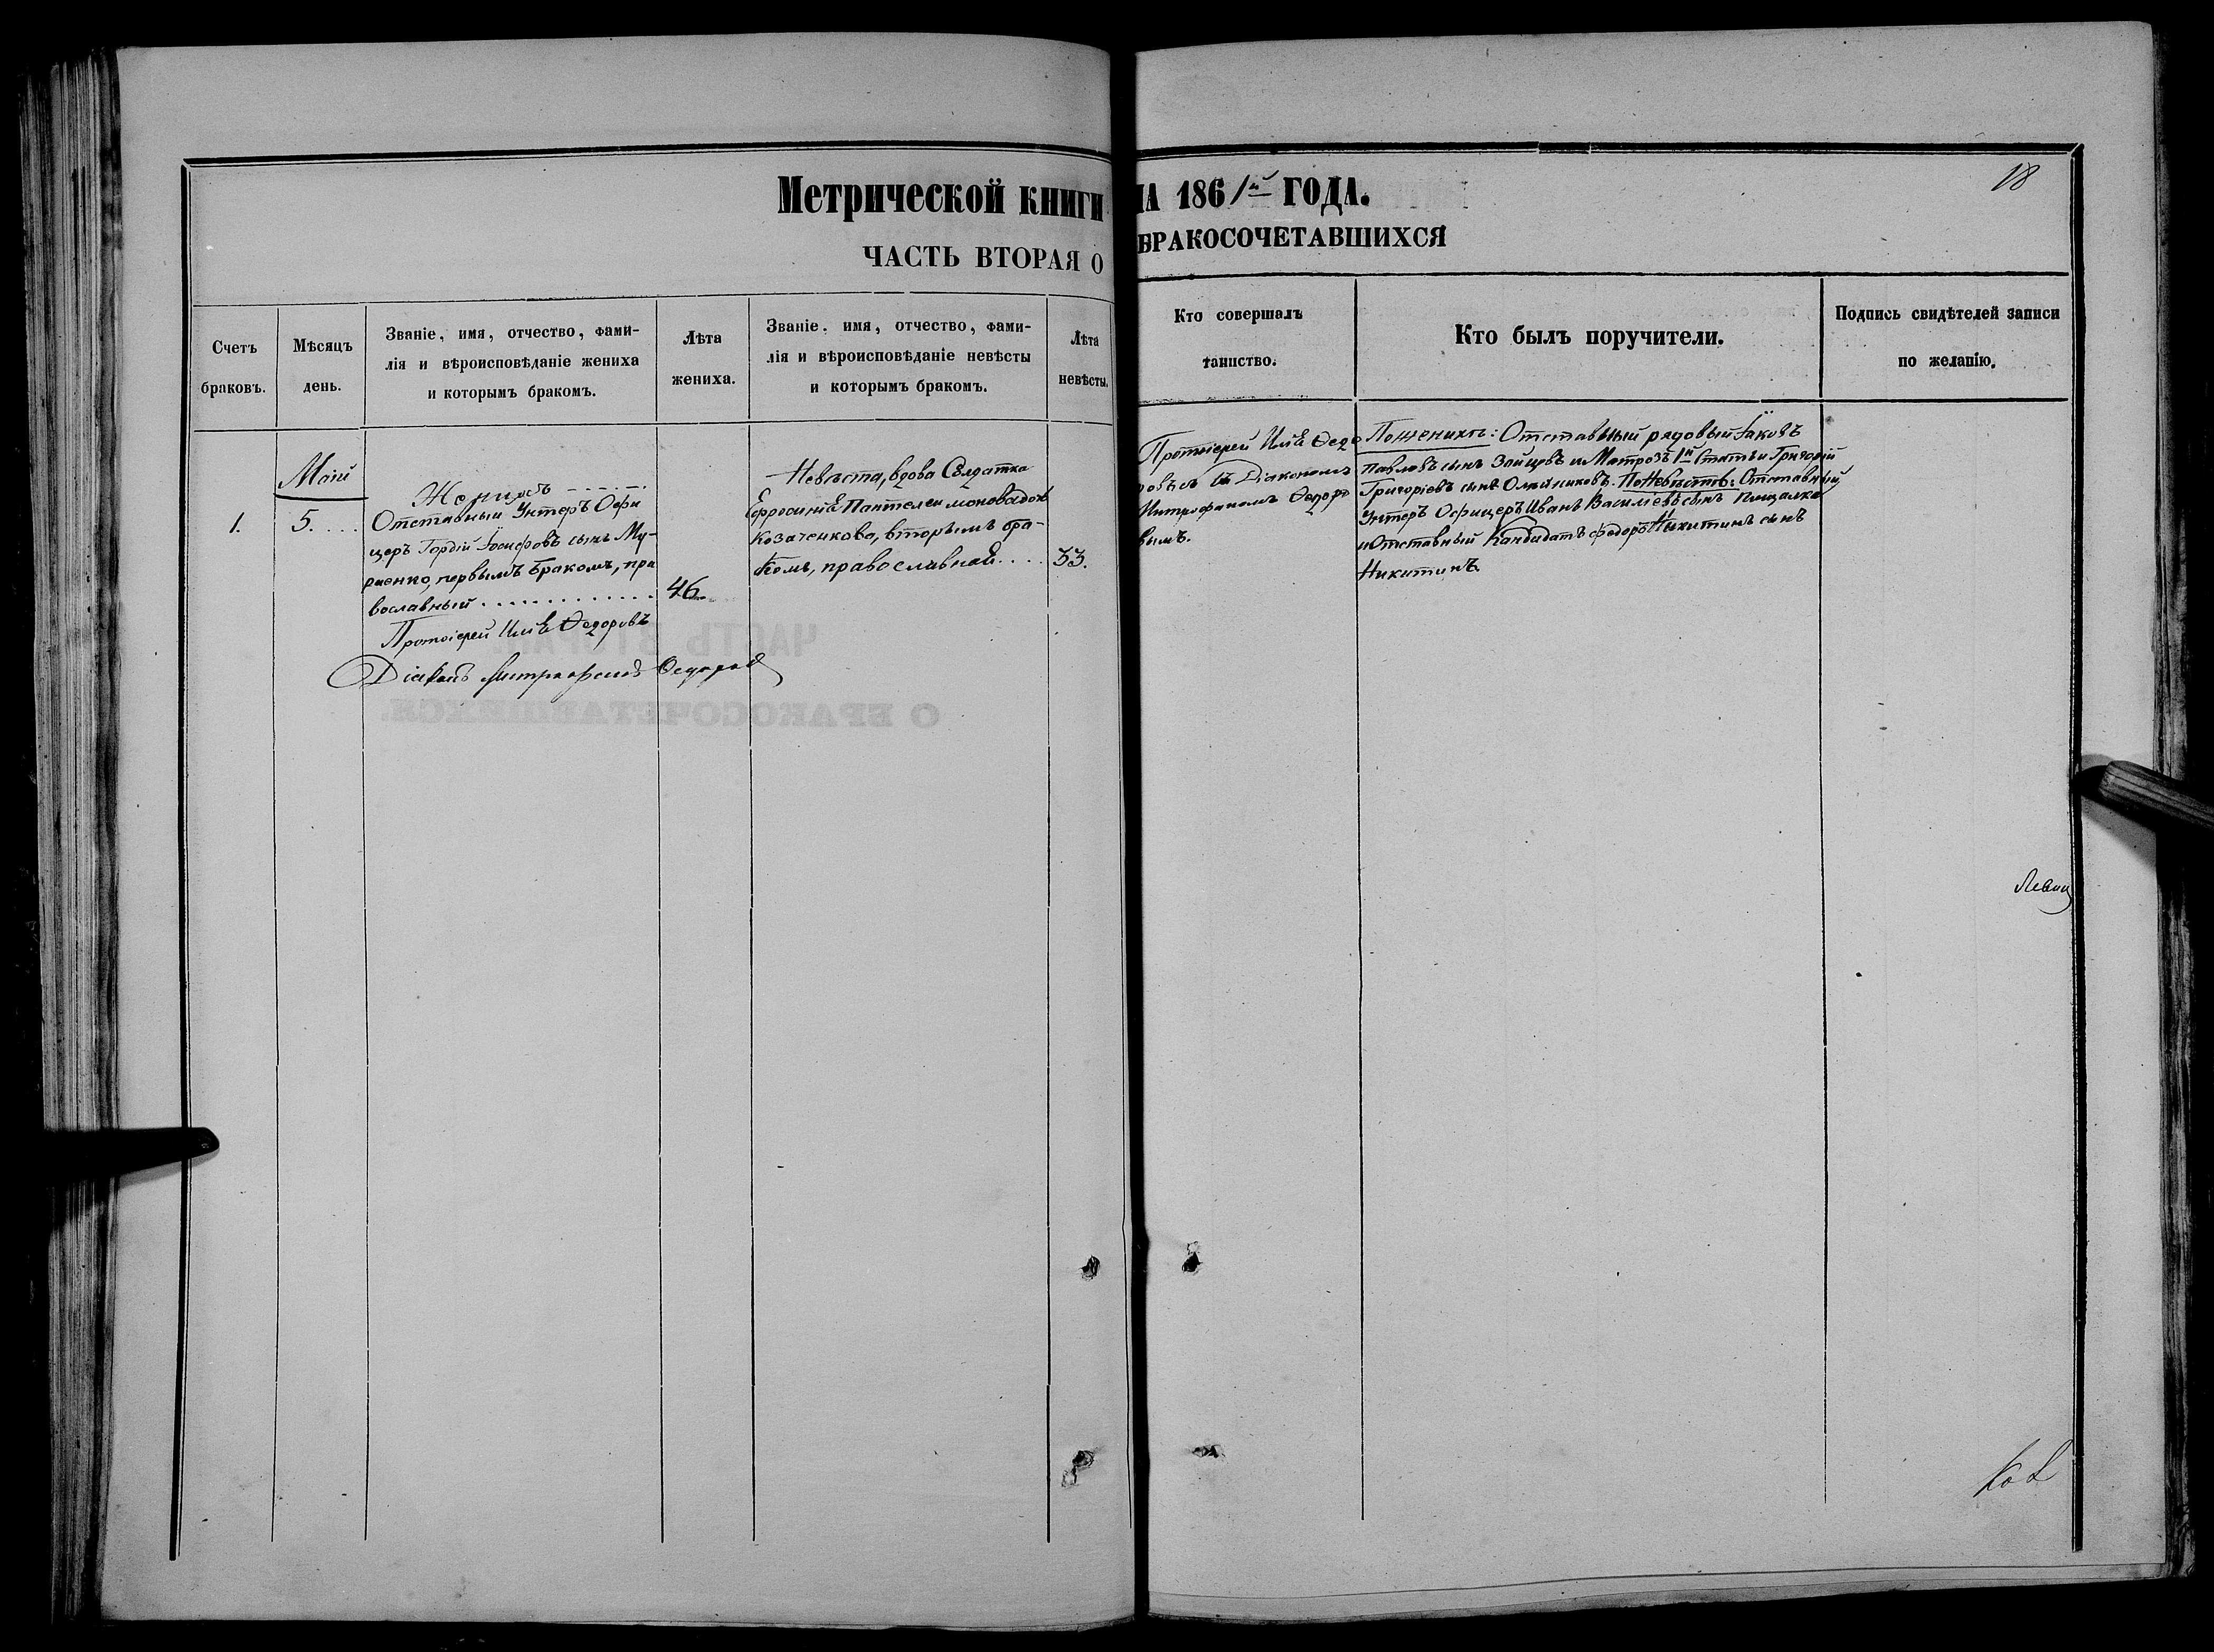 Метрической книги НА 1861й ГОДА.
18
ЧАСТЬ ВТОРАЯ О БРАКОСОЧЕТАВШИХСЯ
Счетъ
браковъ.
Мѣсяцъ
день.
Званіе, имя, отчество, фами-
лія и вѣроисповѣданіе жениха
и которымъ бракомъ.
Лѣта
жениха.
Званіе, имя, отчество, фами-
лія и вѣроисповѣданіе невѣсты
и которымъ бракомъ.
Лѣта
невѣсты.
Кто совершалъ
таинство.
Кто былъ поручители.
Подпись свидѣтелей записи
по желанію.
1.
Маій
5....
Женихъ
Отставный Унтеръ Офи
церъ Гордій Іосифовъ сынъ Му-
риенко, первымъ бракомъ, пра
вославный
46.
Протоіерей Илія Ѳедоровъ
Діаконъ Митрофанъ Ѳедоровъ
Невѣста, вдова Солдатка
Ефросинія Пантелеимоновадочь
Козаченкова, вторымъ бра-
комъ, православная....
33.
Протоіерей Илія Ѳедо
ровъ съ Діакономъ
Митрофаномъ Ѳедоро
вымъ.
Поженихѣ: Отставный рядовый Іаковъ
Павловъ сынъ Зайцовъ и Матрозъ 1й Статьи Григорій
Григоріевъ сынъ Олейниковъ. Поневѣстѣ: Отставный
Унтеръ Офицеръ Иванъ Василіевъ сынъ Пищалка
и Отставный Кандидатъ Федоръ Никитинъ сынъ
Никитинъ.